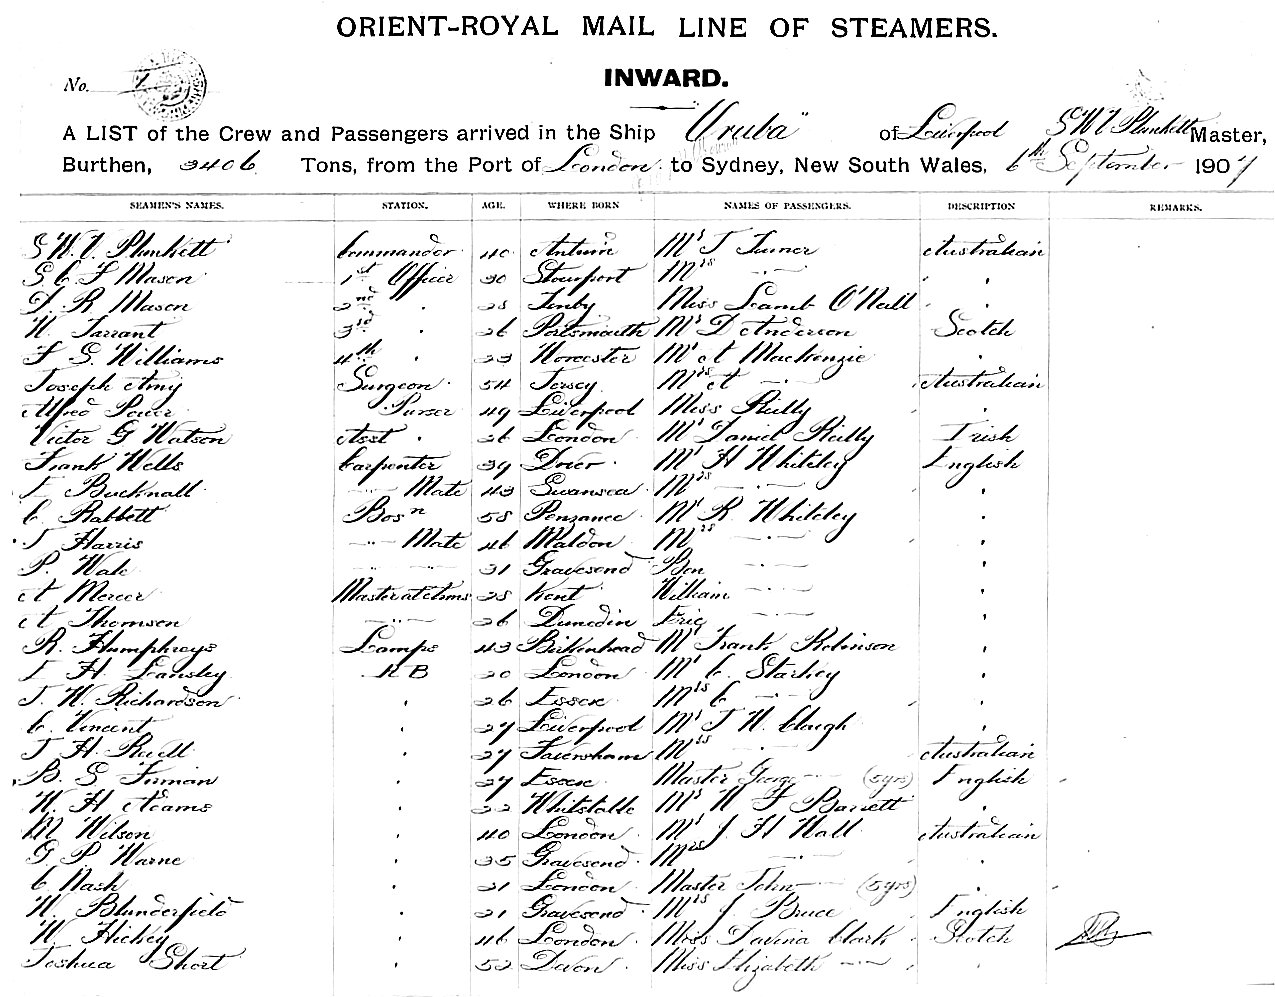 ORIENT-ROYAL MAIL LINE OF STEAMERS.
No. 1
INWARD.
A LIST of the Crew and Passengers arrived in the Ship "Oruba" of Liverpool G W V Plunkett Master,
Burthen, 3406 Tons, from the Port of London to Sydney, New South Wales, 6th September 1907
SEAMEN'S NAMES. STATION. AGE. WHERE BORN NAMES OF PASSENGERS. DESCRIPTION REMARKS.
Plunkett Commander 40 Antrim Mr J Turner Australian
Mason 1st Officer 30 Stourport Mrs —"— "
R Mason 2nd " 28 Tenby Miss Lamb O'Neill "
W Tarrant 3rd " 26 Portsmouth Mr D Anderson Scotch
F G Williams 4th " 23 Worcester Mr A Mackenzie "
Joseph Amy Surgeon 54 Jersey Mrs A —"— Australian
Alfred Power Purser 49 Liverpool Miss Reilly "
Victor G Watson Asst " 26 London Mr Daniel Reilly Irish
Frank Wells Carpenter 39 Dover Mr H Whiteley English
Bucknall —"— Mate 43 Swansea Mrs —"— "
C Rabbett Bosn 58 Penzance Mr R Whiteley "
J Harris —"— Mate 46 Maldon Mrs —"— "
P. Wale —"— —"— 31 Gravesend Ben —"— "
A Mercer Master at Arms 28 Kent William —"— "
A Thomson —"— 26 Dunedin Eric —"— "
R. Humphreys Lamps 43 Birkenhead Mr Frank Robinson "
H Lansley A B 20 London Mr C Starkey "
J. W. Richardson " 26 Essex Mrs C —"— "
C Vincent " 27 Liverpool Mr J W Clough "
J H Ruell " 27 Faversham Mrs —"— Australian
B. G Firman " 27 Essex Master George —"— (5 yrs) English
W. H Adams " 22 Whitstable Mr W F Barrett "
M Wilson " 40 London Mr J H Hall Australian
G P Warne " 35 Gravesend Mrs —"— "
C Nash " 21 London Master John —"— (5 yrs) "
W. Blunderfield " 21 Gravesend Mrs J Bruce English
W Hickey " 46 London Miss Davina Clark Scotch
Joshua Short " 52 Devon Miss Elizabeth —"— "